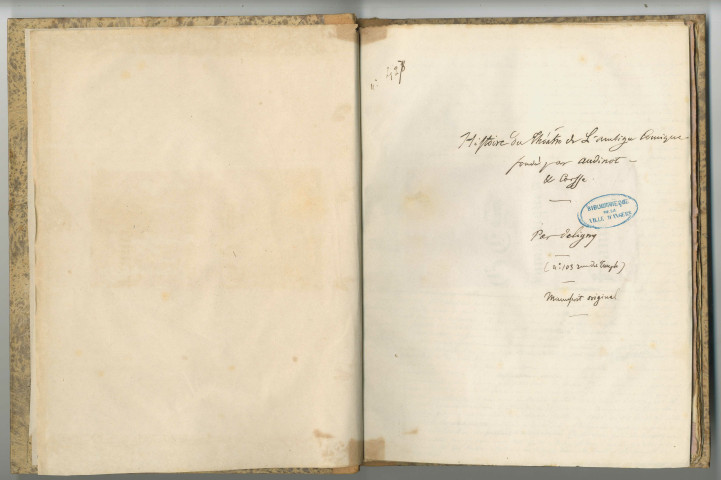 n° 428
Histoire du théâtre de L'ambigu Comique
fondé par audinot
& Corsse.
BIBLIOTHÈQUE
DE LA
VILLE D'ANGERS
Par deligny
(n° 103 rue du Temple)
Manuscrit original